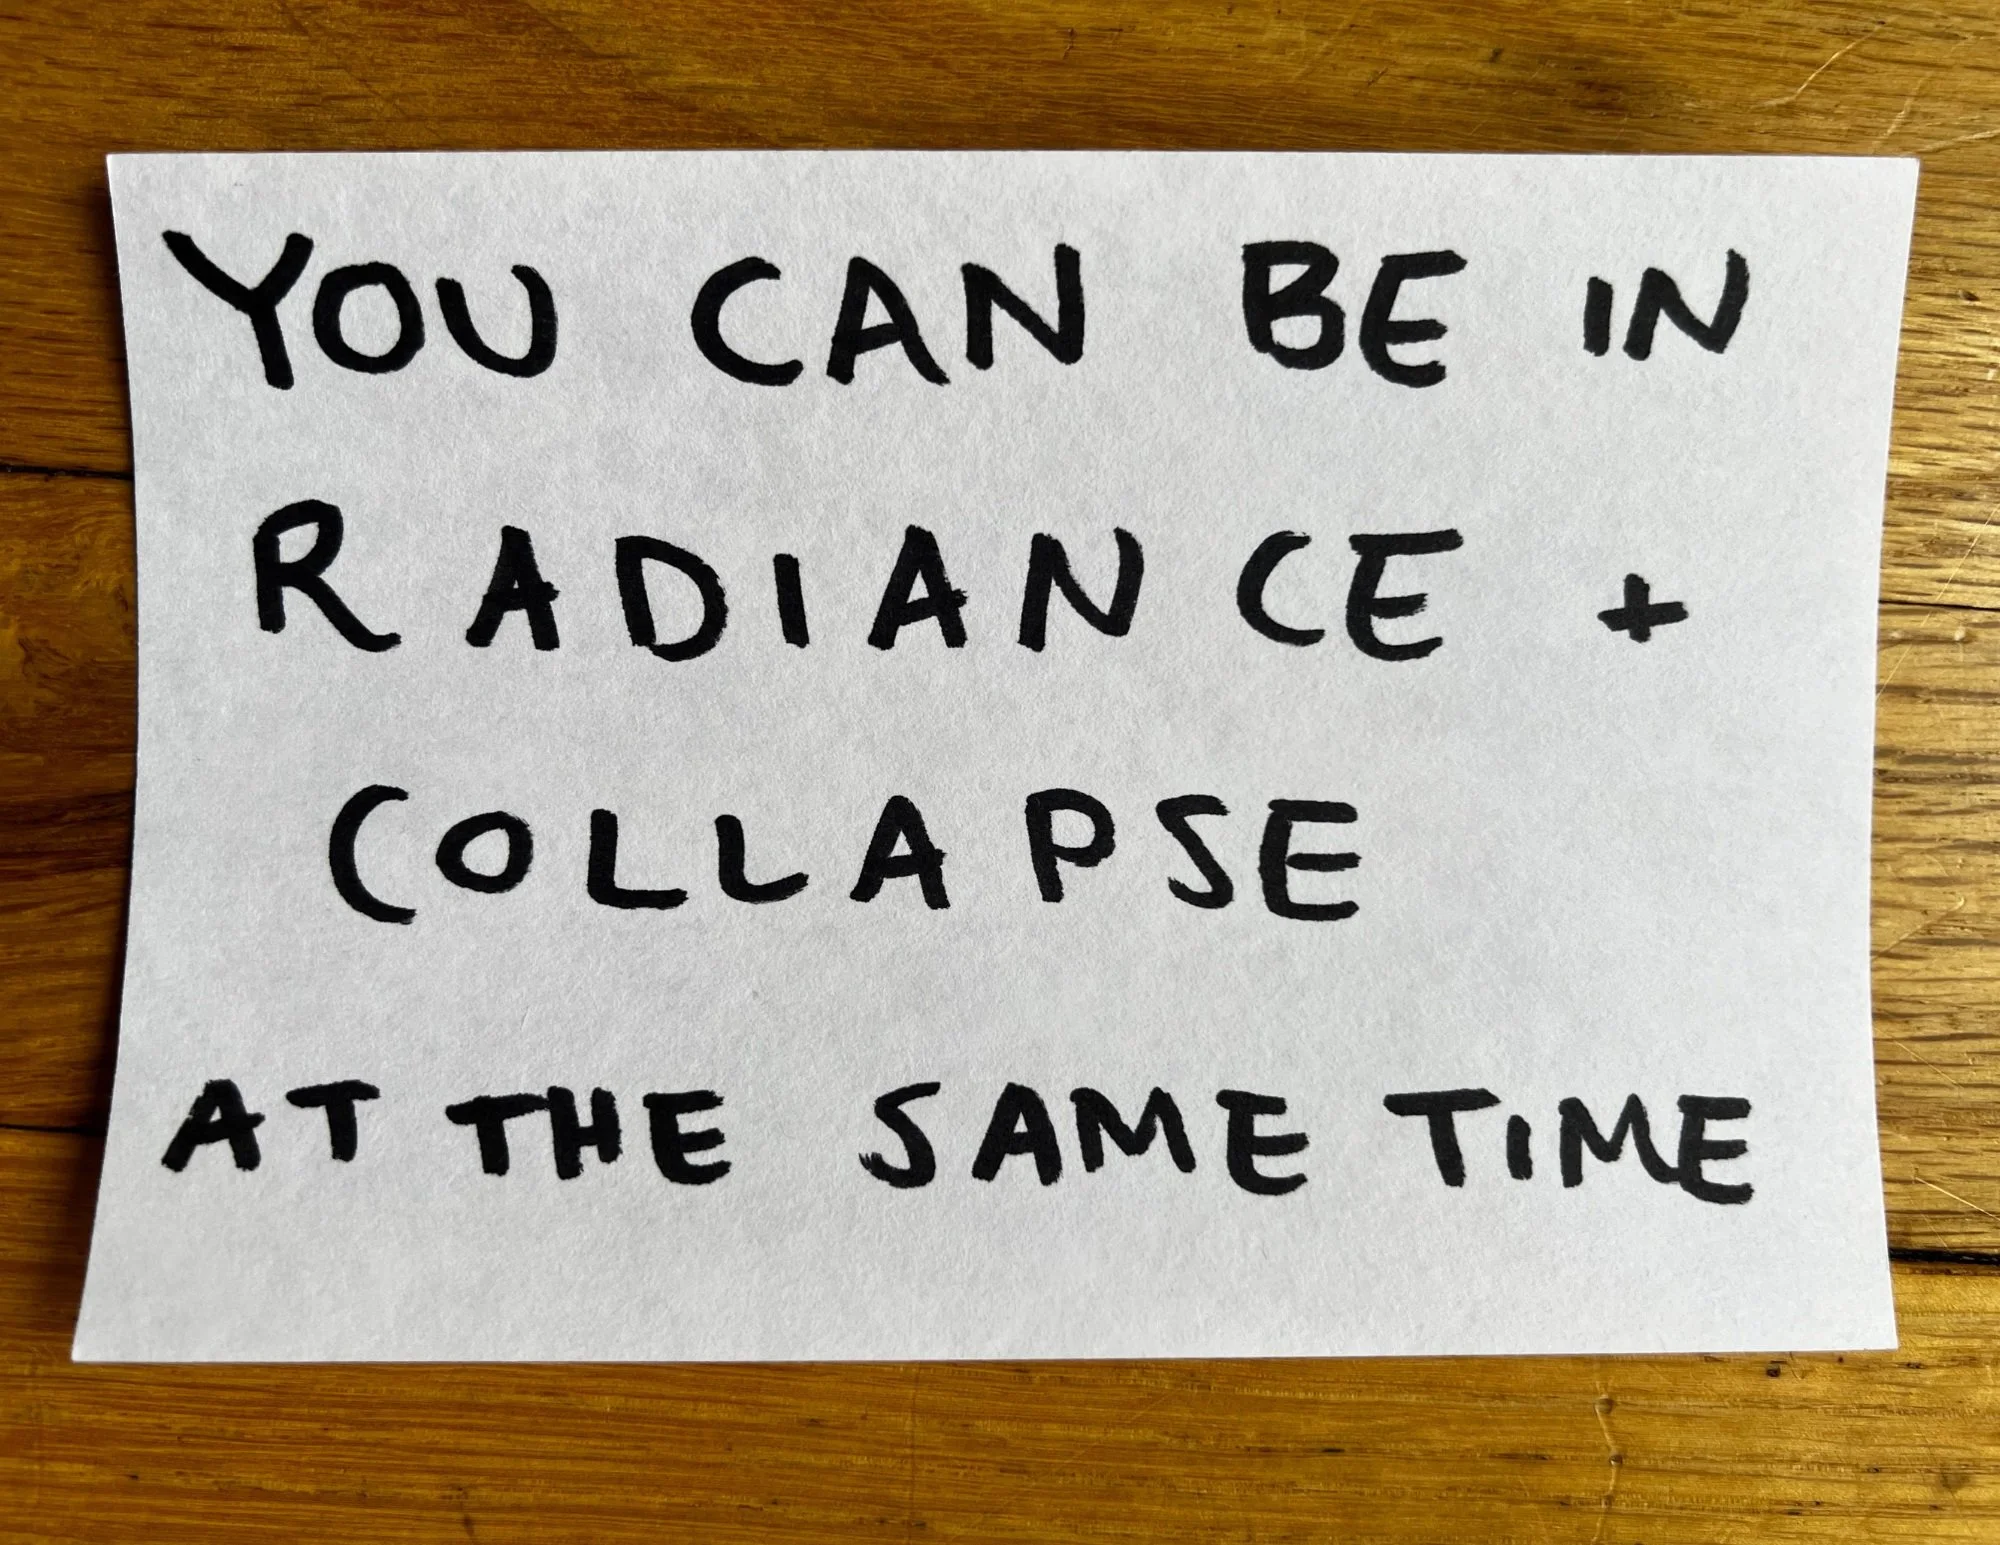 YOU CAN BE IN
RADIANCE +
COLLAPSE
AT THE SAME TIME